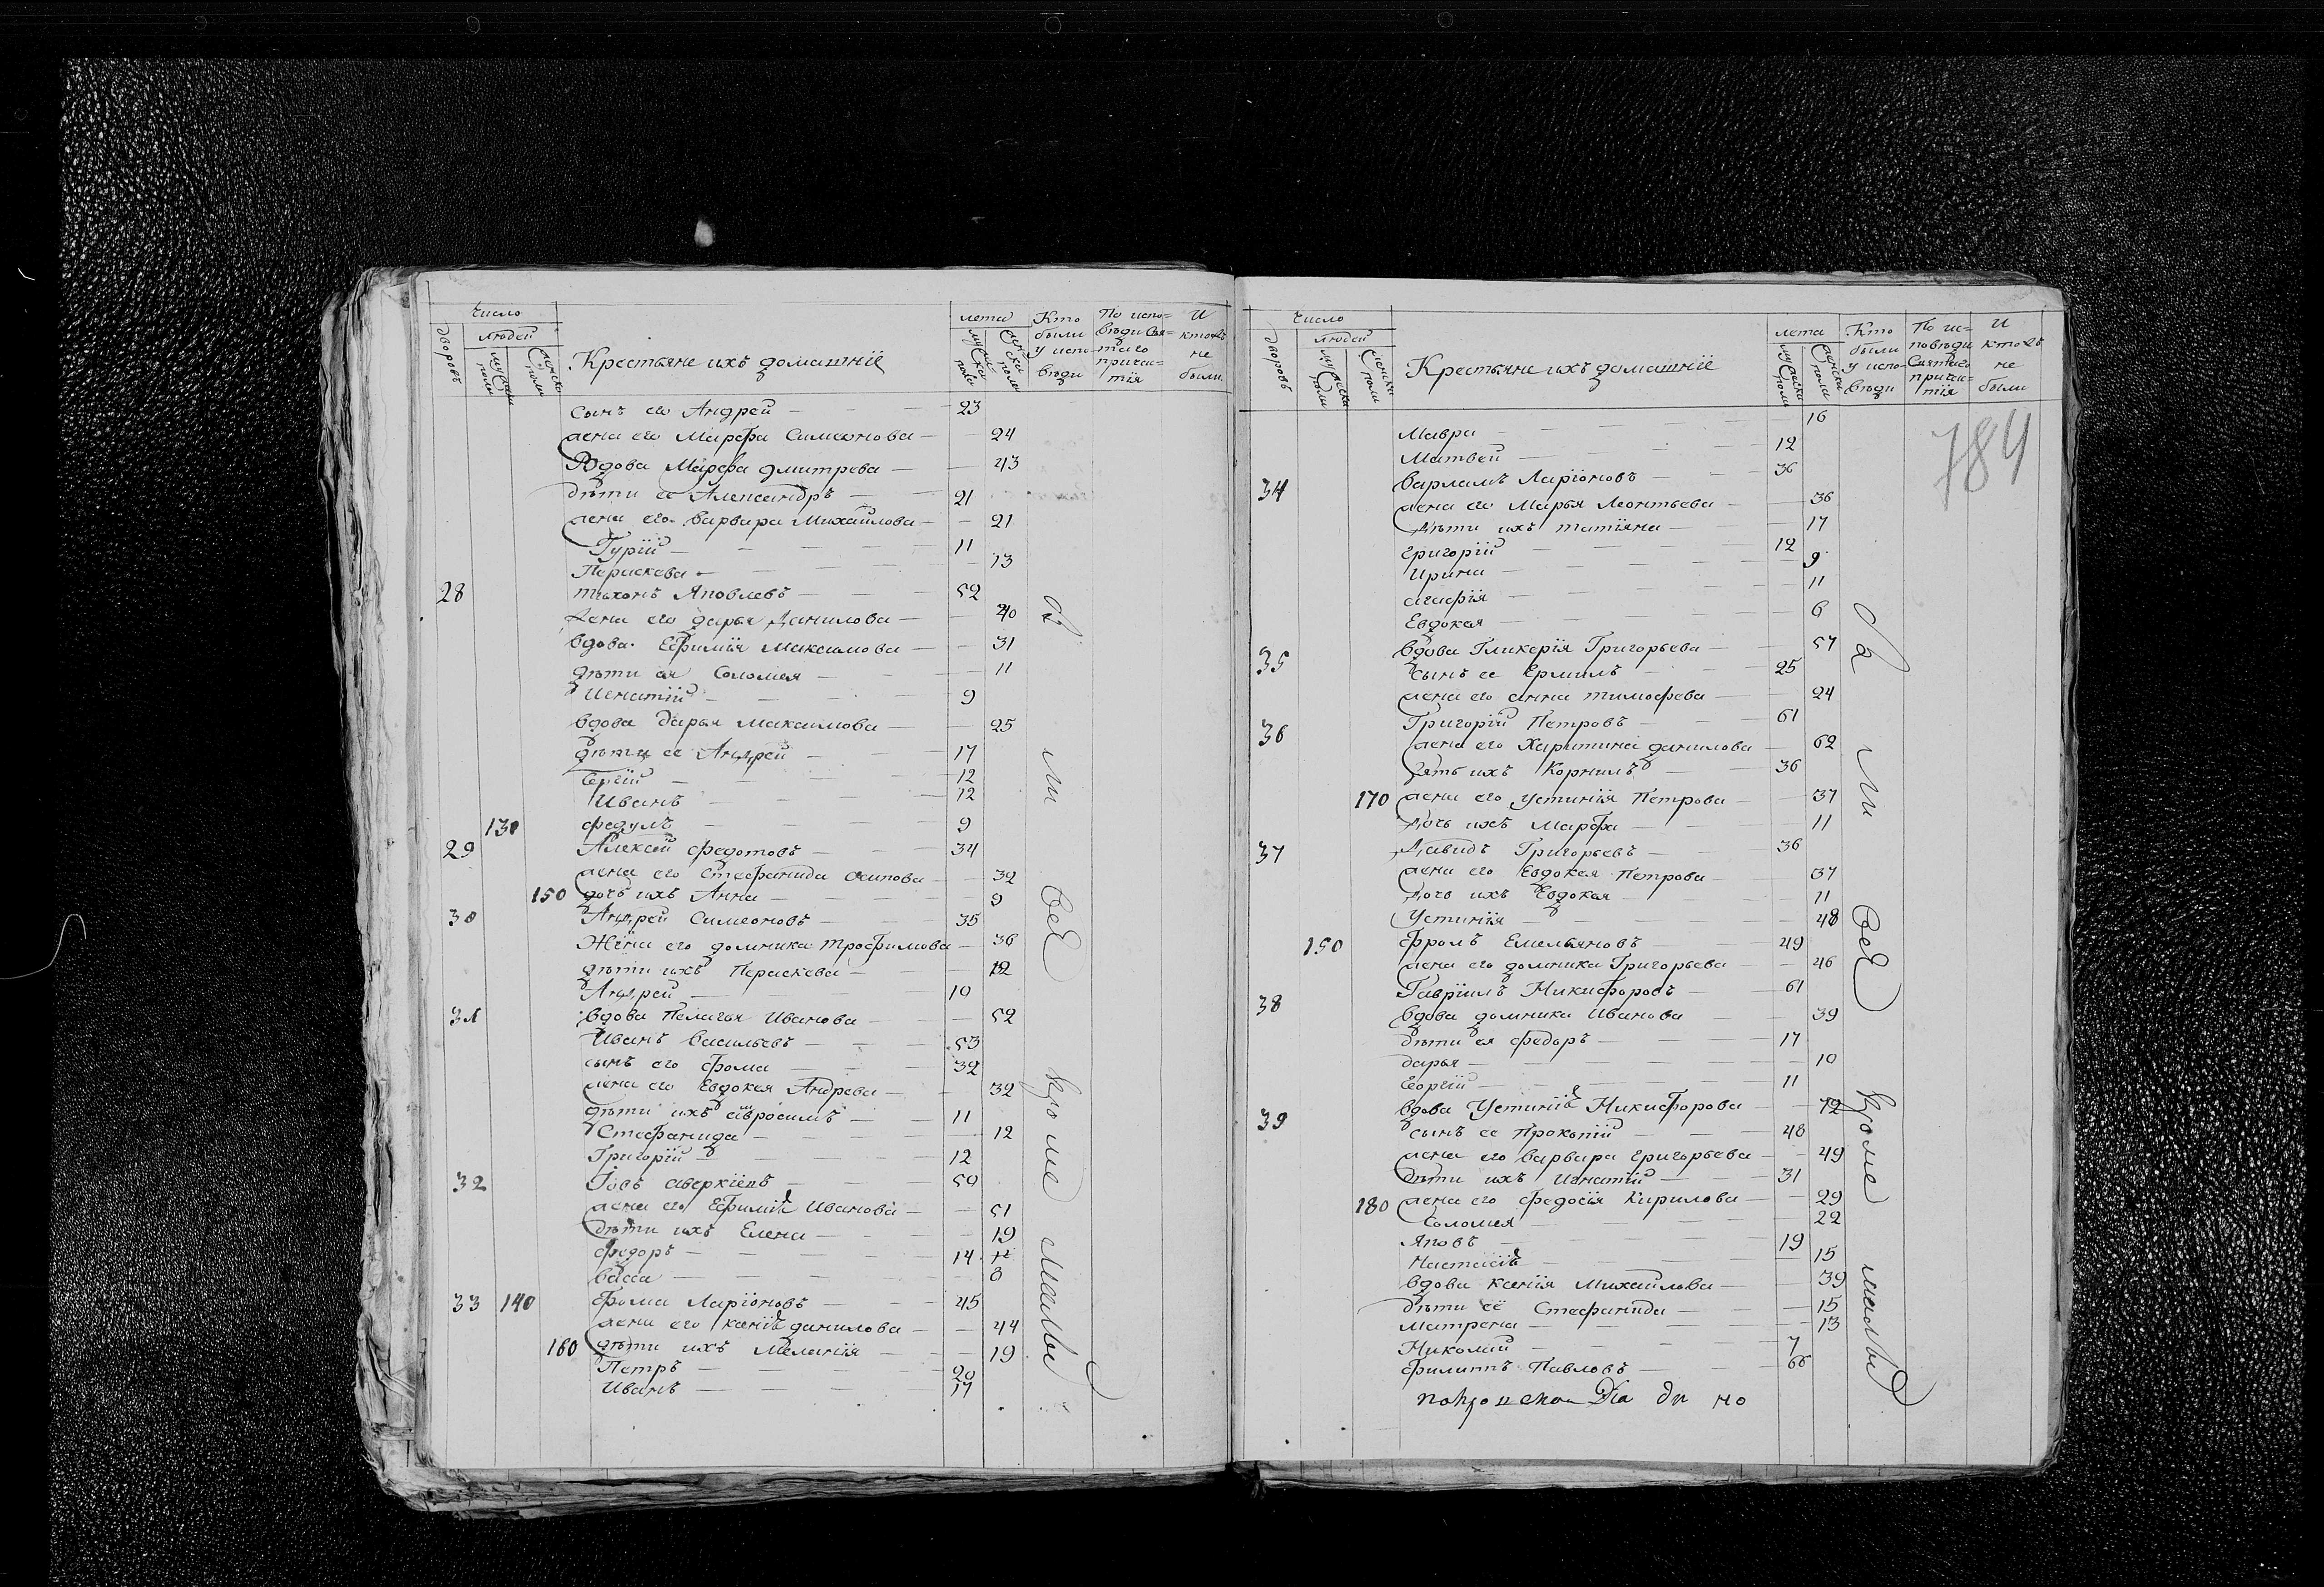 Число
дворовъ
людей
мужеска полу
женска полу
Крестьяне ихъ домашнїе
лета
мужеска полу
женска полу
Кто были у исповѣди
По исповѣди Святаго причастїя
И ктожъ не были.
сынъ его Андрей — 23
жена его Марфа Симеонова — 24
Вдова Марфа дмитрева — 43
дѣти ее Александръ — 21
жена его варвара Михайлова — 21
Гурїй — 11
Пераскева — 13
28 тихонъ Яковлевъ — 52
жена его дарья данилова — 40
вдова Ефимїя Максимова — 31
дѣти ея Соломея — 11
Игнатїй — 9
вдова дарья максимова — 25
дѣти ее Андрей — 17
Сергїй — 12
Иванъ — 12
130 федулъ — 9
29 Алексей федотовъ — 34
жена его Стефанида осипова — 32
150 дочь ихъ Анна — 9
30 Андрей Симеоновъ — 35
Жена его домника трофимова — 36
дѣти ихъ Пераскева — 12
Андрей — 10
31 вдова Пелагея Иванова — 52
Иванъ васильевъ — 53
сынъ его фома — 32
жена его Евдокея Андрева — 32
дѣти ихъ авросимъ — 11
Стефанида — 12
Григорїй — 12
32 Іовъ аверкїевъ — 50
жена его Ефимїя Иванова — 51
дѣти ихъ Елена — 19
федоръ — 14
васса — 8
33 140 фома Ларїоновъ — 45
жена его ксенїя данилова — 44
160 дѣти ихъ Меланїя — 19
Петръ — 20
Иванъ — 17
бы
ли
все
кроме
малые
Число
дворовъ
людей
мужеска полу
женска полу
Крестьяне ихъ домашнїе
лета
мужеска полу
женска полу
Кто были у исповѣди
По исповѣди Святаго причастїя
И ктожъ не были
784
Мавра — 16
Матвей — 12
34 варламъ Ларїоновъ — 36
жена его Марья Леонтьева — 36
дѣти ихъ татїяна — 17
григорїй — 12
Ирина — 9
агафїя — 11
Евдокея — 6
35 вдова Гликерїя Григорьева — 57
сынъ ее Ермилъ — 25
жена его анна тимофева — 24
36 Григорїй Петровъ — 61
жена его Харитина данилова — 62
Зять ихъ Корнилъ — 36
170 жена его устинїя Петрова — 37
дочь ихъ Марфа — 11
37 давидъ Григорьевъ — 36
жена его Евдокея Петрова — 37
дочь ихъ Евдокея — 11
Устинїя — 48
150 фролъ Емельяновъ — 49
жена его домника Григорьева — 46
Гаврїилъ Никифоровъ — 61
38 вдова домника Иванова — 39
дѣти ея федоръ — 17
дарья — 10
Георгїй — 11
39 вдова Устинїя Никифорова — 72
сынъ ее Прокопїй — 48
жена его варвара григорьева — 49
дѣти ихъ Игнатїй — 31
180 жена его федосїя Кирилова — 29
Соломея — 22
Яковъ — 19
Настасїя — 15
вдова ксенїя Михайлова — 39
дѣти её Стефанида — 15
матрена — 13
Николай — 7
филиппъ Павловъ — 66
бы
ли
все
кроме
малые